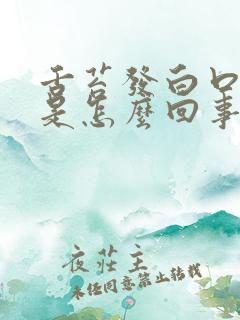 舌苔發白口
是怎麼回事
夜莊主
未经同意禁止转载